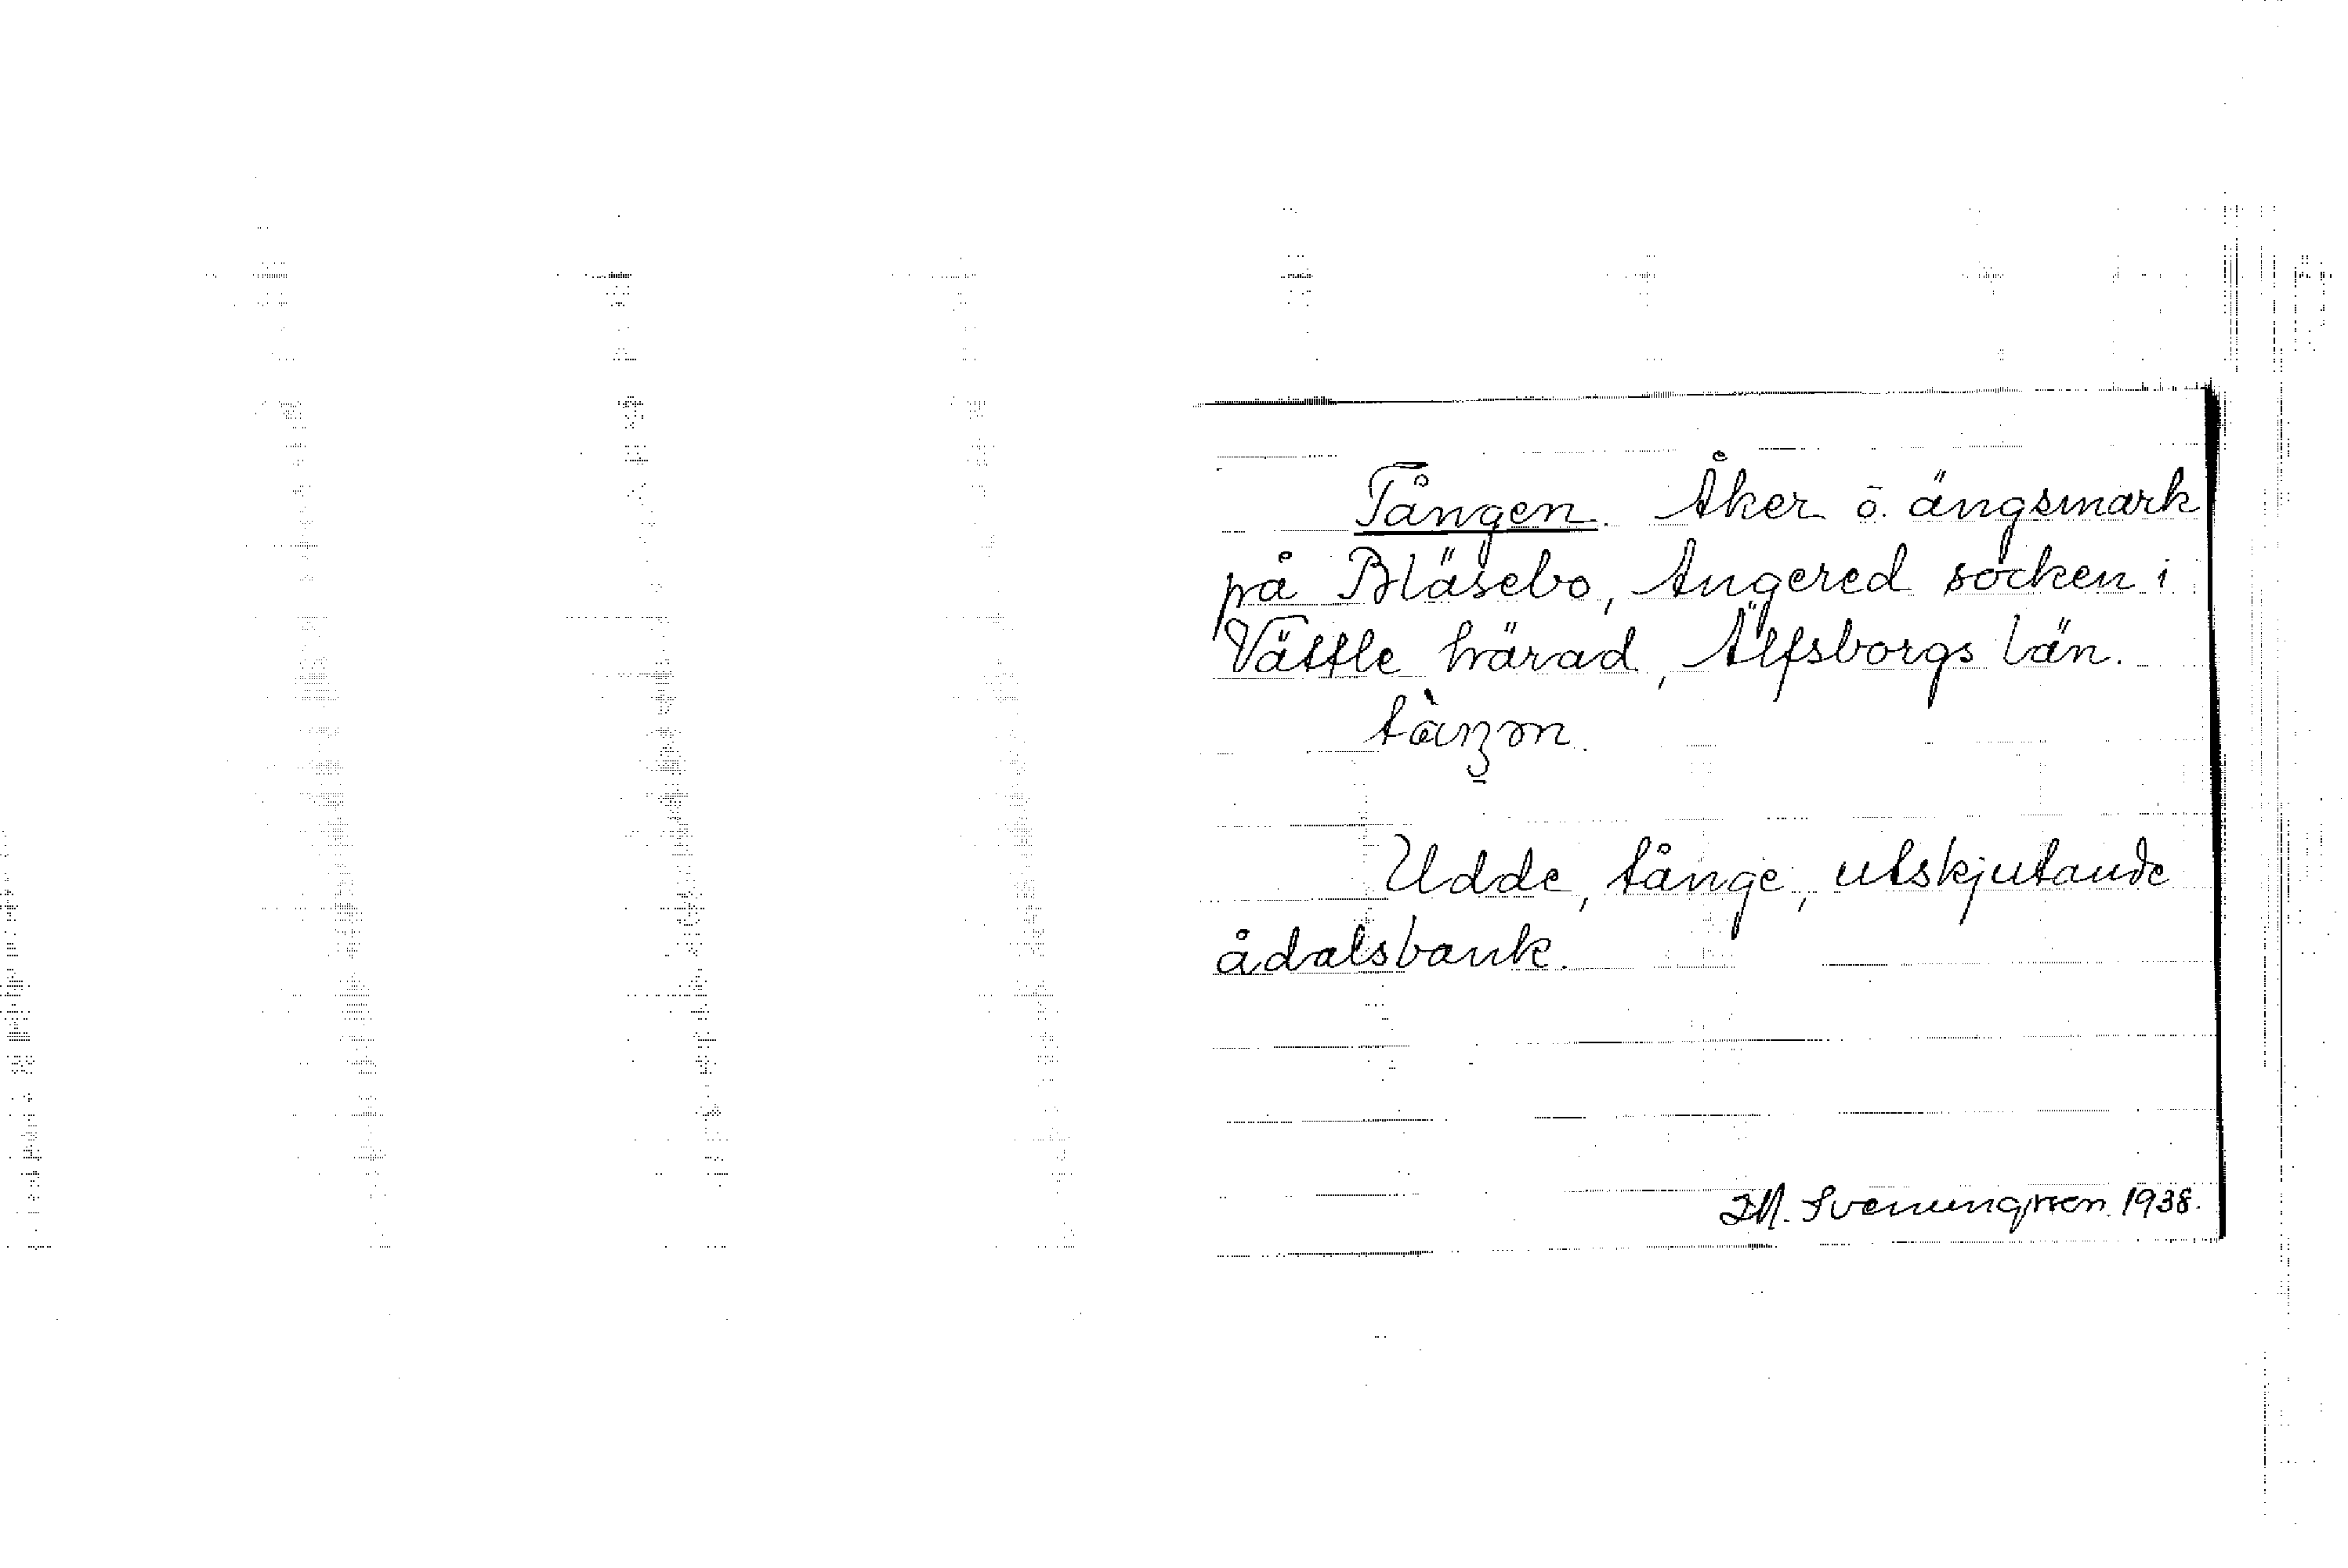 Tången. Åker o. ängsmark
på Bläsebo, Angered socken i
Vättle härad, Älfsborgs län.
Udde, tånge, utskjutande
ådalsbank.
1938.